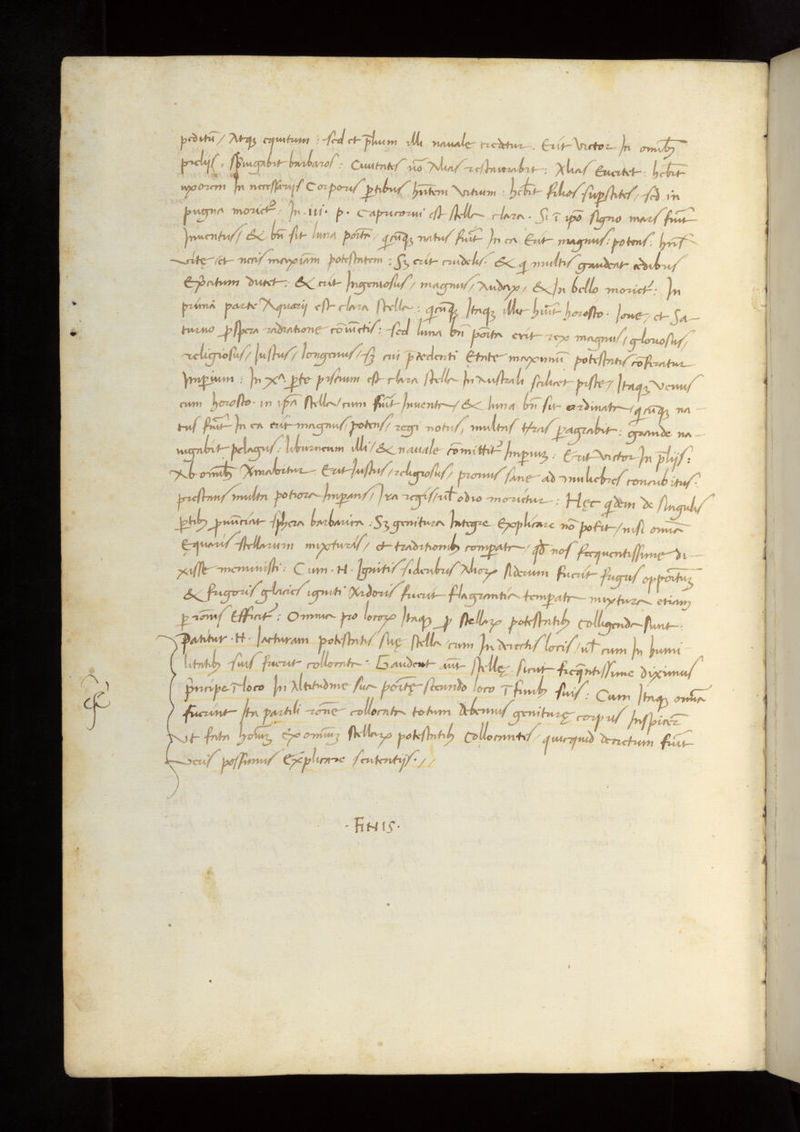 peditū / Atqꝫ equitum : sed et pliū illi nauale credetur . Erit Victor In omībꝫ
prelijs . spiugabit barbaros : Ciuitates nō Alias restaurabit : Alias Euertet : hēbit
uxorem In necessarijs Corporis ꝑtibus hn̄tem Vitium : hēbit filios supstites / sed in
pugna moriet᷑ . In . iii . p . Capricorni est stella clara . Si ī ipō signo mars fuit
Inuentus / & bn̄ sit luna posita / qcūqꝫ natus fuit In ea Erit magnus / potens / hn̄s
uite / et necis maxiam potestatem : Sꝫ erit crudelis . & q multis gaudeat cedibus
Exercitum ducet : & erit Ingeniosus / magnus / Audax / & In bello moriet᷑ : In
prima parte Aquarij est clara stella : qcūqꝫ Itaqꝫ illū hūit horosco . Ioue / et Sa-
turno ꝓspera radiatione cōiūctis : sed luna bn̄ posita erit rex magnus / gloriosus /
religiosus / Iustus / longeuus / sꝫ cui pcedenti Etate maximū potestatis cōferatur
Imperium : In xᵃ ꝑte piscium est clara stella In Australi scilicet pisce / Itaqꝫ Venus
cum horosco . in ipā stella / cum fuit Inuenta / & luna bn̄ sit ordinata / qcūqꝫ na-
tus fuit In ea erit magnus / potens / regi notus / multas tr̄as ꝑagrabit : grande na-
uigabit pelagus : liburnicum illi / & nauale cōmittit᷑ Imperiuꝫ . Erit Victor In plijs :
Ab omibꝫ Amabitur . Erit Iustus / religiosus / pronus sane ad muliebres concubitus :
prestans multa potiora Imperans / Ira regis / ul odio morietur : Hec qdem de singulis
ꝑtibꝫ pnūciat sphera barbarica . Sꝫ genitura Integre Explicare nō potest / nisi omia
Equaris stellarum mixturis / et traditionibꝫ comparata / qd nos frequentissime di-
xisse meminisci : Cum . H . Ignitis sideribus Alioꝝ siderum fuerit frigus oppositū
& frigoris glacies igniti Ardoris fuerit flagrantia temperata mixtura etiam
ꝑ ionis Efficit᷑ : Omnia pro locoꝝ Itaqꝫ ꝑ stellaꝝ potestatibꝫ Colligenda sunt .
Patitur . H . Iacturam potestatis sue stella cum In deiectis locis / ul cum In humi
litatibꝫ suis fuerit collocata . Gaudent aut stelle sicut freqntissime diximus
pncipe ī loco In Altitudine sua posite / secundo loco ī finibꝫ suis : Cum Itaqꝫ omia
fuerint Ita partili rōne collocata totum debemus geniture corpus Inspicere
Vt fata hoiuꝫ ex omniuꝫ stellaꝝ potestatibꝫ Collocantis / quicquid decretum fuit
Veris possimus Explicare sententijs . //
· FINIS ·